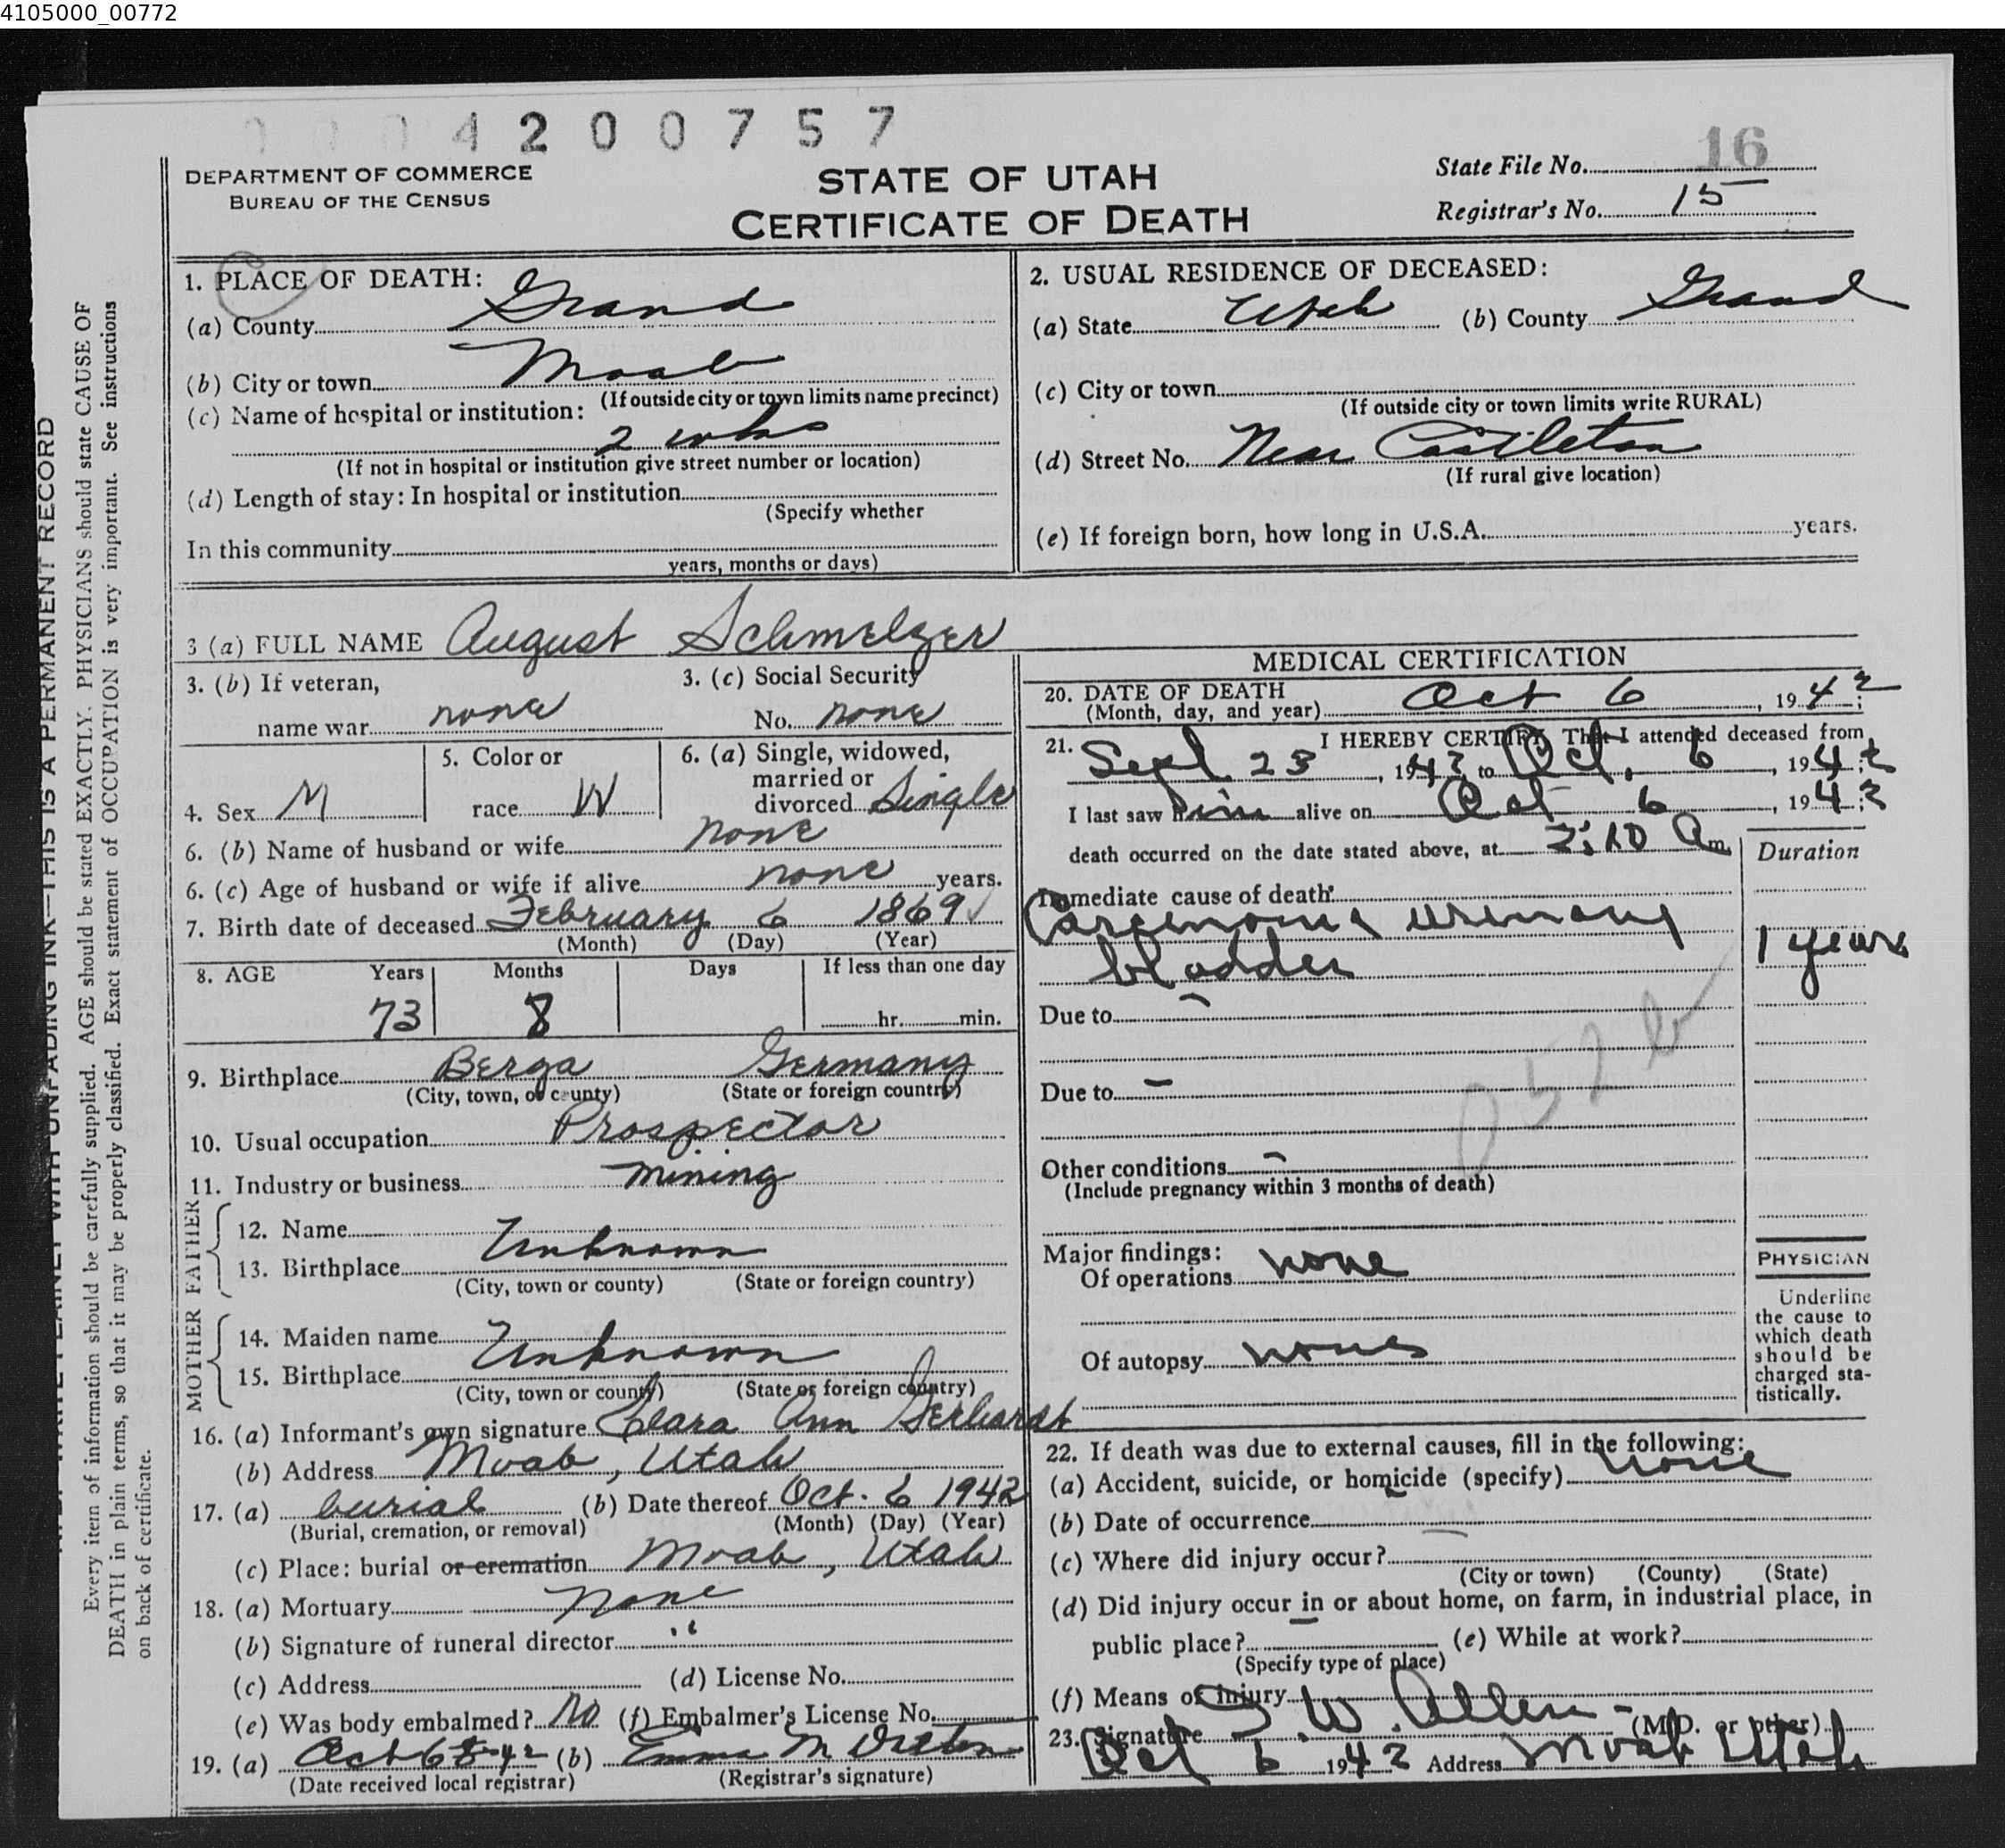 4105000_00772
0004200757
DEPARTMENT OF COMMERCE
BUREAU OF THE CENSUS
STATE OF UTAH
CERTIFICATE OF DEATH
State File No. 16
Registrar's No. 15
1. PLACE OF DEATH:
(a) County Grand
(b) City or town Moab
(If outside city or town limits name precinct)
(c) Name of hospital or institution:
2 wks
(If not in hospital or institution give street number or location)
(d) Length of stay: In hospital or institution
(Specify whether
In this community
years, months or days)
2. USUAL RESIDENCE OF DECEASED:
(a) State Utah (b) County Grand
(c) City or town
(If outside city or town limits write RURAL)
(d) Street No. Near Castleton
(If rural give location)
(e) If foreign born, how long in U.S.A. years.
3 (a) FULL NAME August Schmelzer
3. (b) If veteran,
name war none
3. (c) Social Security
No. none
4. Sex M
5. Color or
race W
6. (a) Single, widowed,
married or
divorced Single
6. (b) Name of husband or wife none
6. (c) Age of husband or wife if alive none years.
7. Birth date of deceased February 6 1869
(Month) (Day) (Year)
8. AGE Years Months Days If less than one day
73 8 hr. min.
9. Birthplace Berga Germany
(City, town, or county) (State or foreign country)
10. Usual occupation Prospector
11. Industry or business mining
FATHER
12. Name
Unknown
13. Birthplace
(City, town or county) (State or foreign country)
MOTHER
14. Maiden name
Unknown
15. Birthplace
(City, town or county) (State or foreign country)
16. (a) Informant's own signature Clara Ann Gerhardt
(b) Address Moab, Utah
17. (a) burial (b) Date thereof Oct. 6 1942
(Burial, cremation, or removal) (Month) (Day) (Year)
(c) Place: burial or cremation Moab, Utah
18. (a) Mortuary none
(b) Signature of funeral director "
(c) Address (d) License No.
(e) Was body embalmed? No (f) Embalmer's License No.
19. (a) Oct 6 42 (b) Emma M
(Date received local registrar) (Registrar's signature)
MEDICAL CERTIFICATION
20. DATE OF DEATH
(Month, day, and year) Oct 6, 1942
21. I HEREBY CERTIFY, That I attended deceased from
Sept 23, 1942 to Oct. 6, 1942
I last saw him alive on Oct 6, 1942
death occurred on the date stated above, at 2:10 Am.
Duration
Immediate cause of death
Carcinoma urinary
bladder
1 years
Due to -
052b
Due to -
Other conditions -
(Include pregnancy within 3 months of death)
Major findings:
Of operations none
Of autopsy none
PHYSICIAN
Underline
the cause to
which death
should be
charged sta-
tistically.
22. If death was due to external causes, fill in the following:
(a) Accident, suicide, or homicide (specify) none
(b) Date of occurrence
(c) Where did injury occur?
(City or town) (County) (State)
(d) Did injury occur in or about home, on farm, in industrial place, in
public place? (e) While at work?
(Specify type of place)
(f) Means of injury
23. Signature W. Allen (M.D. or other)
Oct 6 1942 Address Moab Utah
WITH UNFADING INK—THIS IS A PERMANENT RECORD
Every item of information should be carefully supplied. AGE should be stated EXACTLY. PHYSICIANS should state CAUSE OF
DEATH in plain terms, so that it may be properly classified. Exact statement of OCCUPATION is very important. See instructions
on back of certificate.